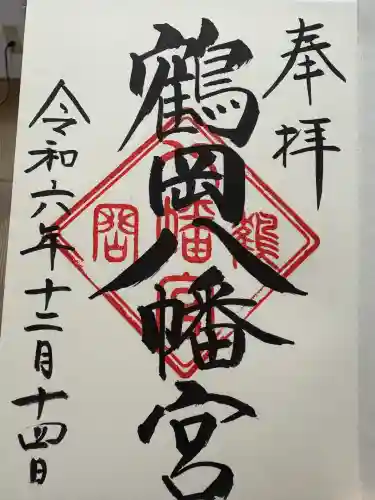 奉拝
鶴岡八幡宮
令和六年十二月十四日
鶴
岡
八幡宮